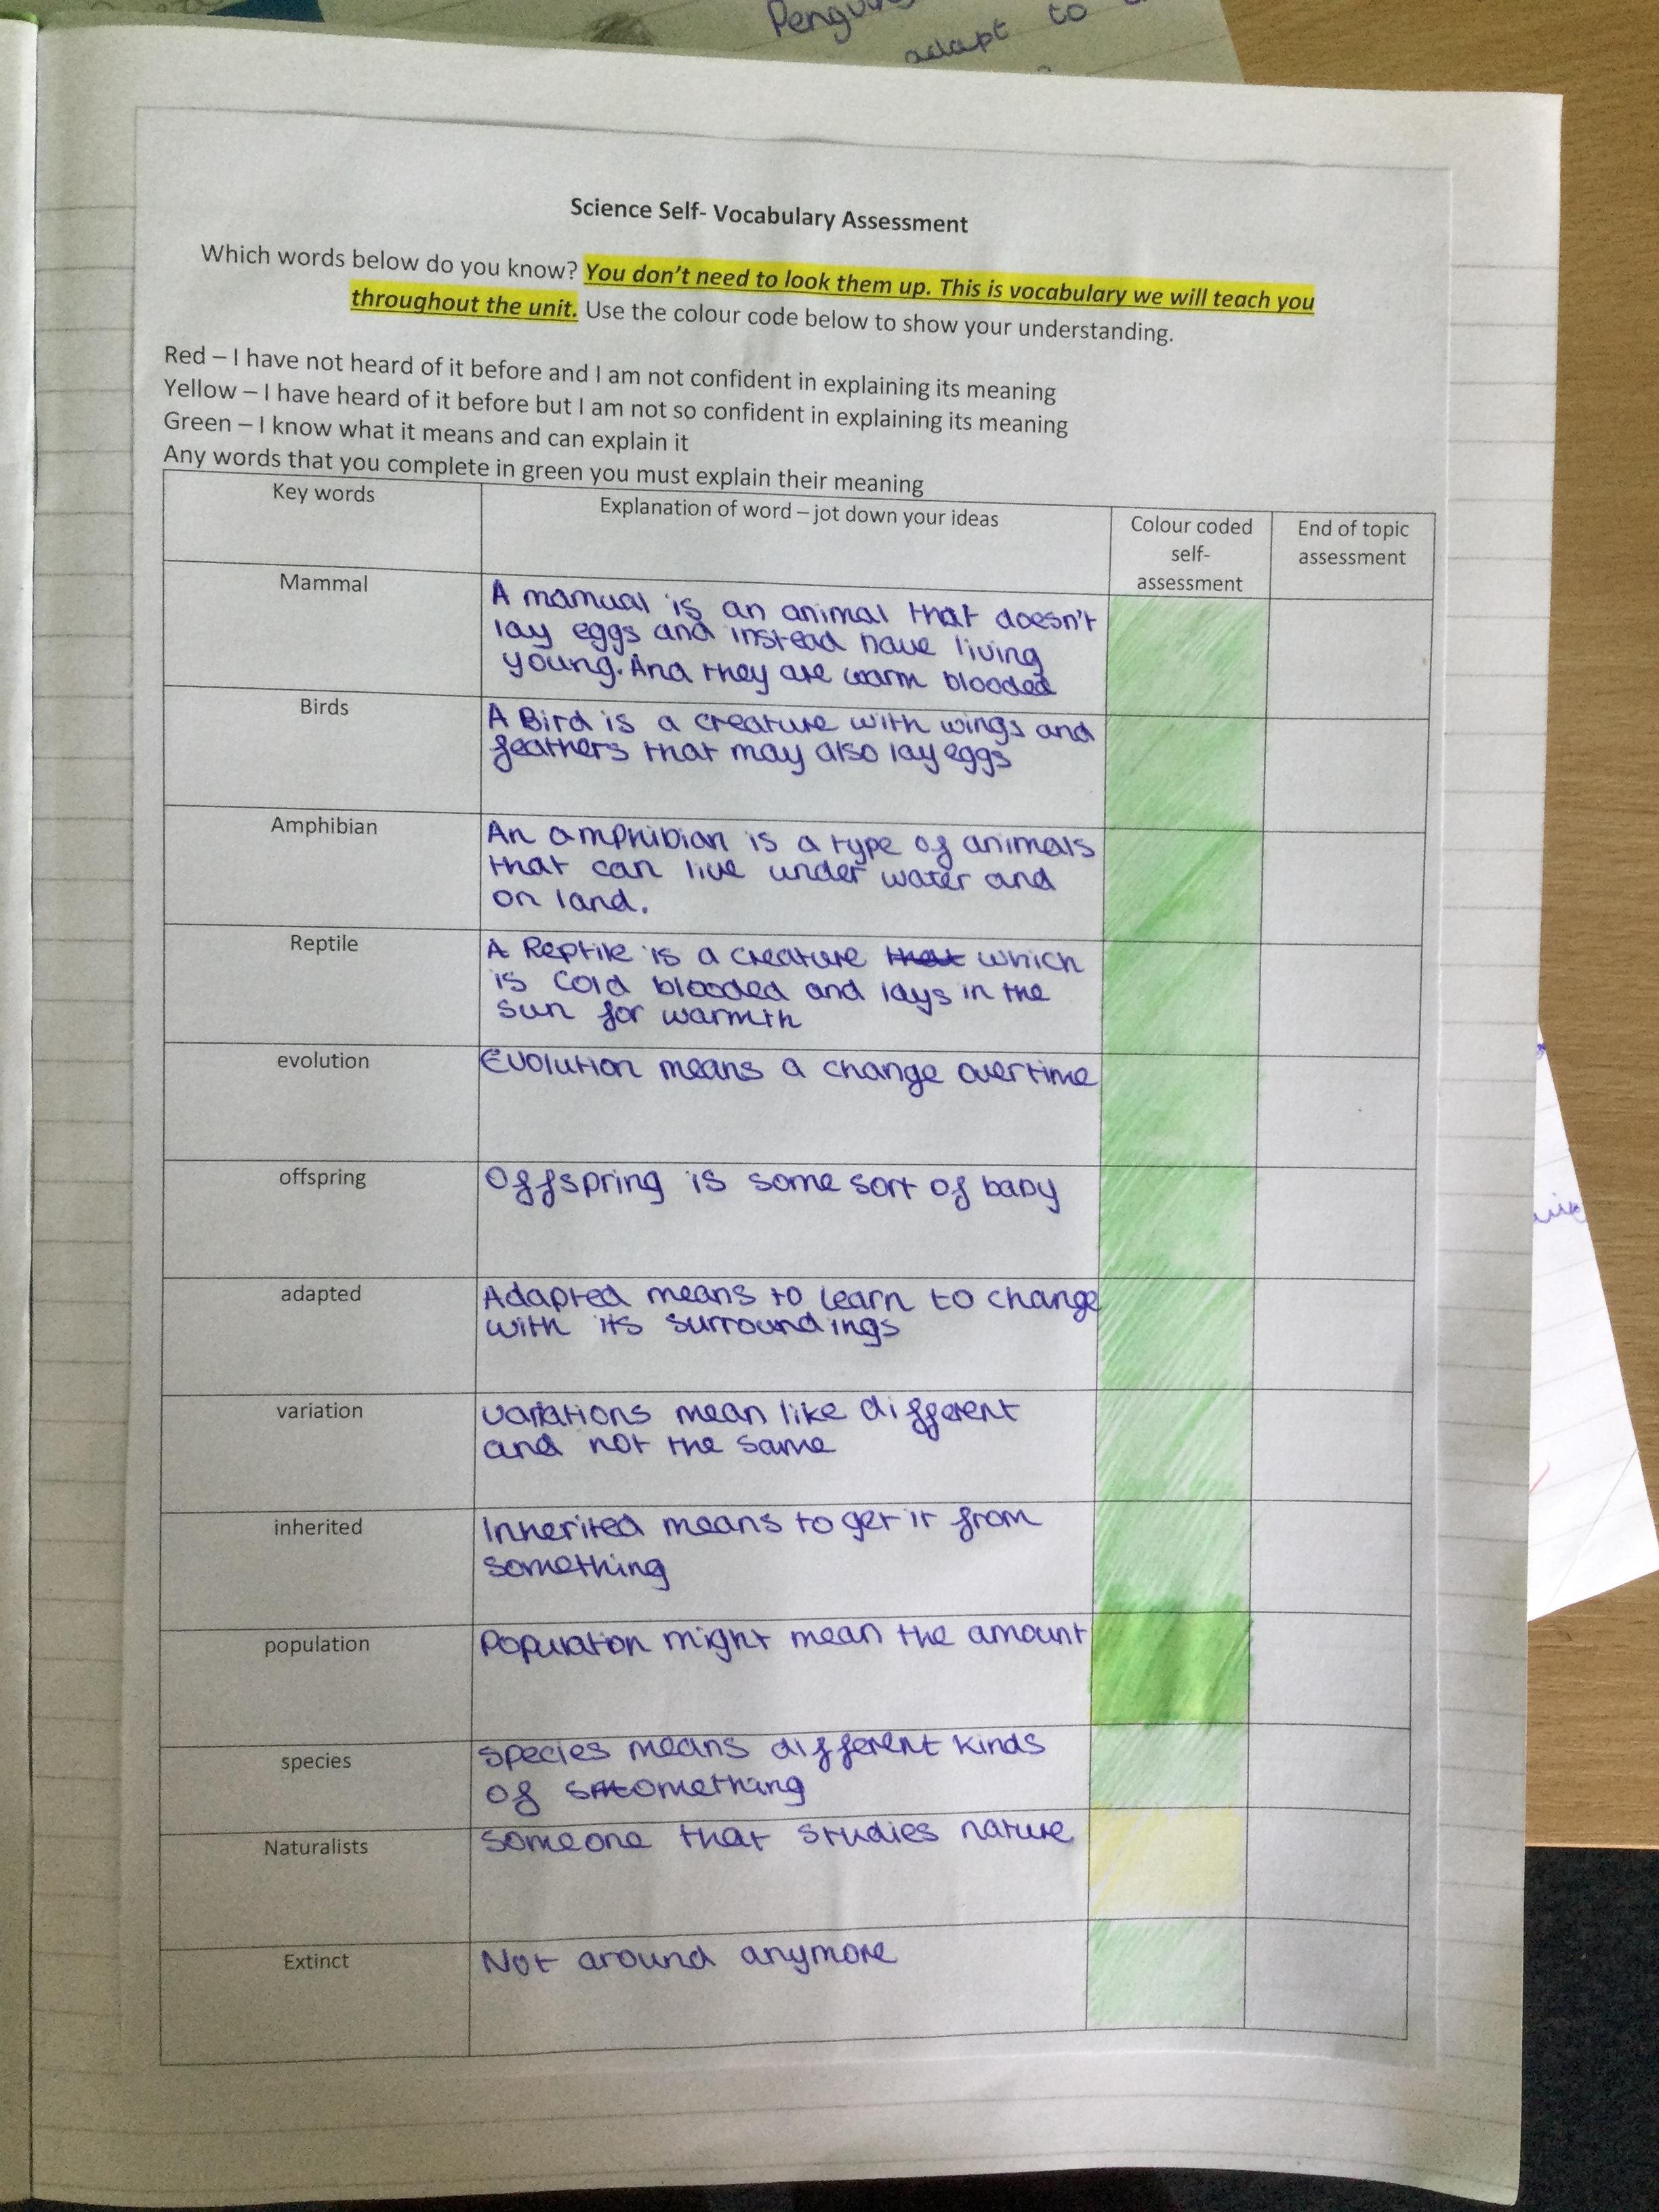 Penguin
adapt to
Science Self- Vocabulary Assessment
Which words below do you know? You don't need to look them up. This is vocabulary we will teach you
throughout the unit. Use the colour code below to show your understanding.
Red – I have not heard of it before and I am not confident in explaining its meaning
Yellow – I have heard of it before but I am not so confident in explaining its meaning
Green – I know what it means and can explain it
Any words that you complete in green you must explain their meaning
Key words
Explanation of word – jot down your ideas
Colour coded
self-
assessment
End of topic
assessment
Mammal
A mamual is an animal that doesn't
lay eggs and instead have living
young. And they are warm blooded
Birds
A Bird is a creature with wings and
feathers that may also lay eggs
Amphibian
An amphibian is a type of animals
that can live under water and
on land.
Reptile
A Reptile is a creature that which
is cold blooded and lays in the
sun for warmth
evolution
Evolution means a change overtime
offspring
Offspring is some sort of baby
adapted
Adapted means to learn to change
with its surroundings
variation
variations mean like different
and not the same
inherited
Inherited means to get it from
something
population
Population might mean the amount
species
species means different kinds
of something
Naturalists
someone that studies nature
Extinct
Not around anymore